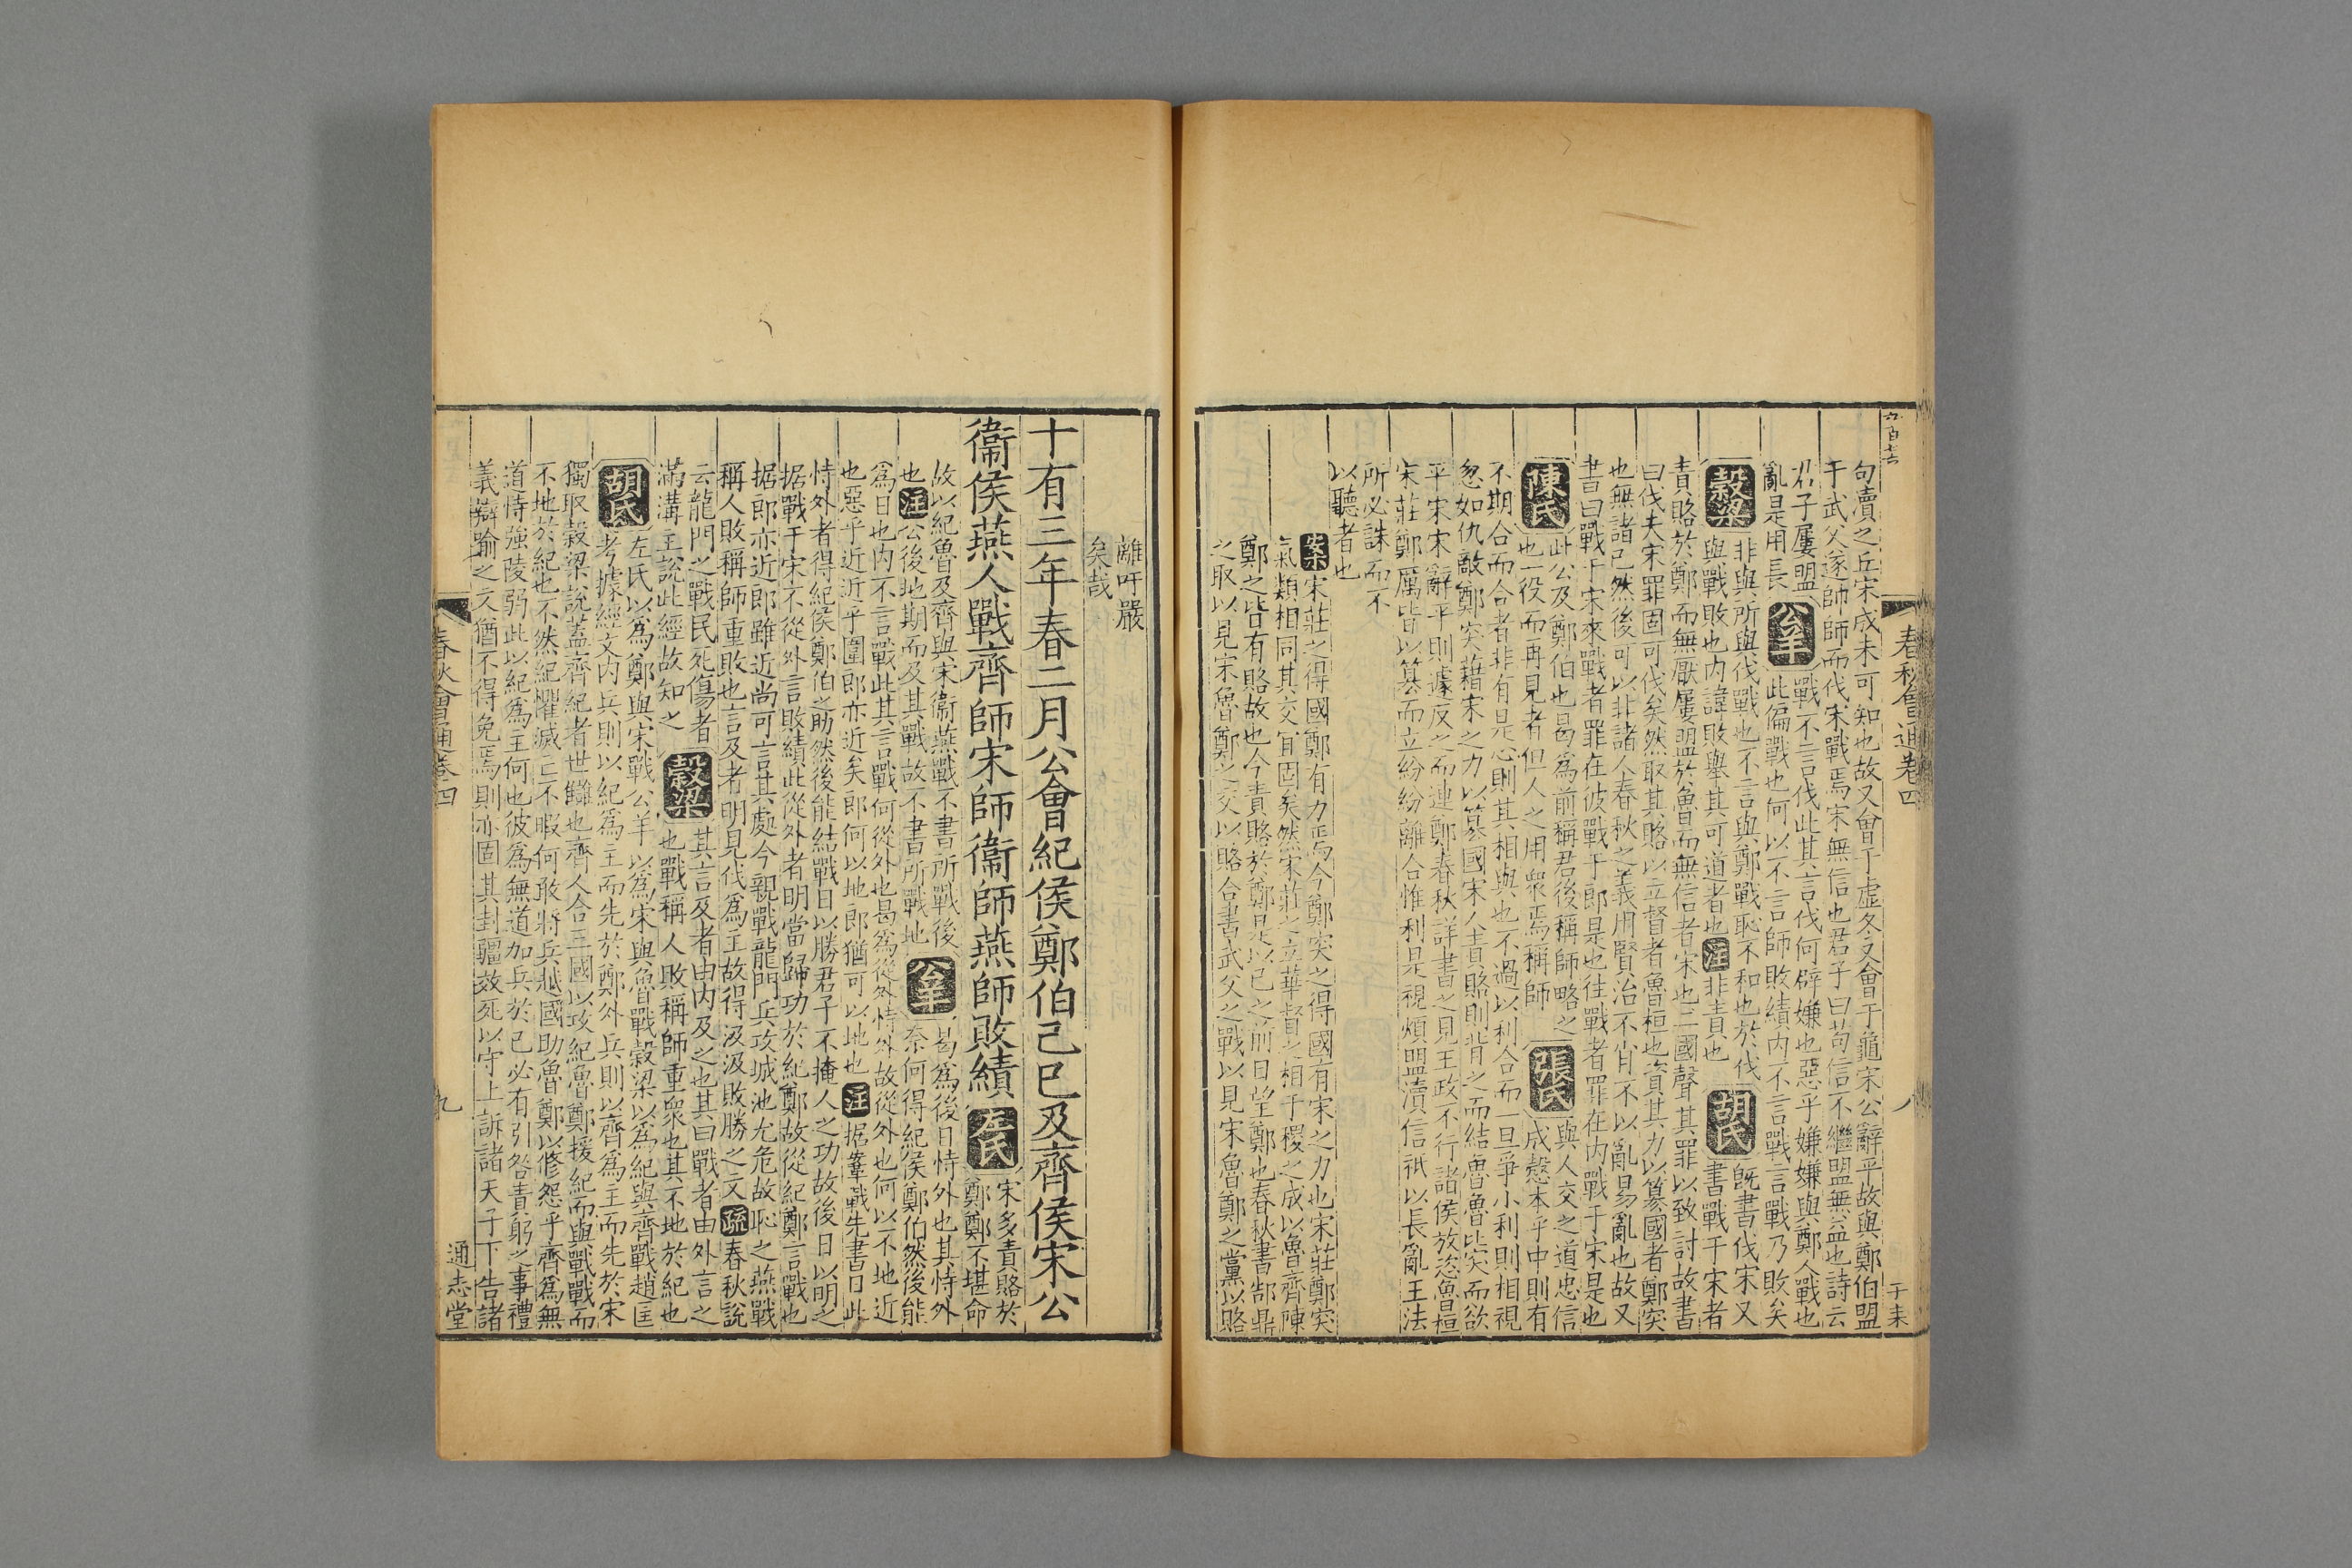 春秋會通卷四
句瀆之丘宋成未可知也故又會于虛冬又會于龜宋公辭平故與鄭伯盟
于武父遂帥師而伐宋戰焉宋無信也君子曰苟信不繼盟無益也詩云
君子屢盟
亂是用長
公羊
戰不言伐此其言伐何辟嫌也惡乎嫌嫌與鄭人戰也
此偏戰也何以不言師敗績內不言戰言戰乃敗矣
穀梁
非與所與伐戰也不言與鄭戰恥不和也於伐
與戰敗也內諱敗舉其可道者也注非責也
胡氏
既書伐宋又
書戰于宋者
責賂於鄭而無厭屢盟於魯而無信者宋也二國聲其罪以致討故書
曰伐夫宋罪固可伐矣然取其賂以立督者魯桓也資其力以篡國者鄭突
也無諸己然後可以非諸人春秋之義用賢治不肖不以亂易亂也故又
書曰戰于宋來戰者罪在彼戰于郎是也往戰者罪在內戰于宋是也
陳氏
此公及鄭伯也曷為前稱君後稱師略之
也一役而再見者但人之用衆焉稱師
張氏
與人交之道忠信
成慤本乎中則有
不期合而合者非有是心則其相與也不過以利合而一旦爭小利則相視
忽如仇敵鄭突藉宋之力以篡國宋人責賂則背之而結魯魯比突而欲
平宋宋辭平則遽反之而連鄭春秋詳書之見王政不行諸侯放恣魯桓
宋莊鄭厲皆以篡而立紛紛離合惟利是視煩盟瀆信祇以長亂王法
所必誅而不
以聽者也
宋莊之得國鄭有力焉今鄭突之得國有宋之力也宋莊鄭突
氣類相同其交宜固矣然宋莊之立華督之相于稷之成以魯齊陳
鄭之皆有賂故也今責賂於鄭是以己之前日望鄭也春秋書郜鼎
之取以見宋魯鄭之交以賂合書武父之戰以見宋魯鄭之黨以賂
離吁嚴
矣哉
十有三年春二月公會紀侯鄭伯己巳及齊侯宋公
衞侯燕人戰齊師宋師衞師燕師敗績
左氏
宋多責賂於
鄭鄭不堪命
故以紀魯及齊與宋衞燕戰不書所戰後
也注公後地期而及其戰故不書所戰地
公羊
曷為後日恃外也其恃外
奈何得紀侯鄭伯然後能
為日也內不言戰此其言戰何從外也曷為從外恃外故從外也何以不地近
也惡乎近近乎圍郎亦近矣郎何以地郎猶可以地也注据鞌戰先書日此
恃外者得紀侯鄭伯之助然後能結戰日以勝君子不掩人之功故後日以明之
据戰于宋不從外言敗績此從外者明當歸功於紀鄭故從紀鄭言戰也
据郎亦近郎雖近尚可言其處今親戰龍門兵攻城池尤危故恥之燕戰
稱人敗稱師重敗也言及者明見伐為主故得汲汲敗勝之文疏春秋說
云龍門之戰民死傷者
滿溝主說此經故知之
穀梁
其言及者由內及之也其曰戰者由外言之
也戰稱人敗稱師重衆也其不地於紀也
胡氏
左氏以為鄭與宋戰公羊以為宋與魯戰穀梁以為紀與齊戰趙匡
考據經文內兵則以紀為主而先於鄭外兵則以齊為主而先於宋
獨取穀梁說蓋齊紀者世讎也齊人合三國以攻紀魯鄭援紀而與戰戰而
不地於紀也不然紀懼滅亡不暇何敢將兵越國助魯鄭以修怨乎齊為無
道恃強陵弱此以紀為主何也彼為無道加兵於己必有引咎責躬之事禮
義辯喻之文猶不得免焉則亦固其封疆效死以守上訴諸天子下告諸
春秋會通卷四
九
通志堂